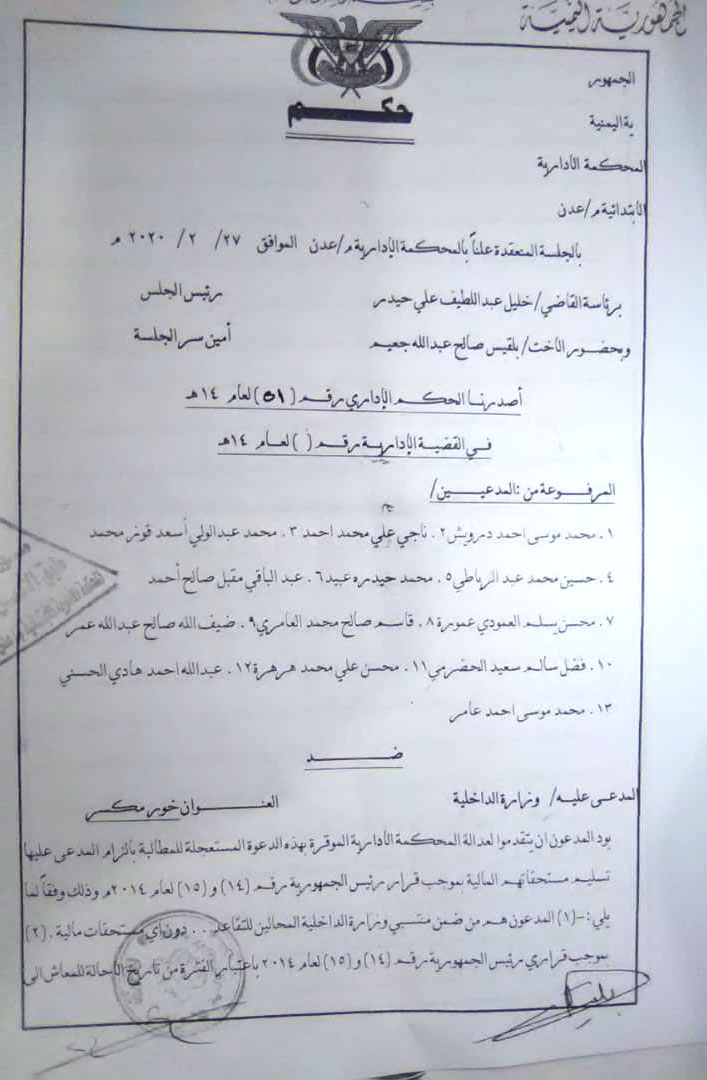 الجمهورية اليمنية
الجمهور
ية اليمنية
حكم
المحكمة الأدارية
الأبتدائية م/عدن
بالجلسة المنعقدة علناً بالمحكمة الإدارية م/عدن الموافق ٢٧/ ٢/ ٢٠٢٠ م
برئاسة القاضي/ خليل عبد اللطيف علي حيدر رئيس الجلس
وبحضور الأخت/ بلقيس صالح عبدالله جعيم أمين سر الجلسة
أصدرنا الحكم الإداري رقم (٥١) لعام ١٤هـ
في القضية الإدارية رقم ( ) لعام ١٤هـ
المرفوعة من :المدعيين/
١. محمد موسى احمد درويش ٢. ناجي علي محمد احمد ٣. محمد عبدالولي أسعد قونر محمد
٤. حسين محمد عبد الرباطي ٥. محمد حيدره عبيد ٦. عبد الباقي مقبل صالح أحمد
٧. محسن يسلم العمودي عموره ٨. قاسم صالح محمد العامري ٩. ضيف الله صالح عبدالله عمر
١٠. فضل سالم سعيد الحضرمي ١١. محسن علي محمد هرهرة ١٢. عبدالله احمد هادي الحسني
١٣. محمد موسى احمد عامر
ضد
المدعى عليه/ وزارة الداخلية العنوان خور مكسر
يود المدعون ان يتقدموا لعدالة المحكمة الأدارية الموقرة بهذه الدعوة المستعجلة للمطالبة بالزام المدعى عليها
تسليم مستحقاتهم المالية بموجب قرار رئيس الجمهورية رقم (١٤) و (١٥) لعام ٢٠١٤م وذلك وفقاً لما
يلي :-(١) المدعون هم من ضمن منتسبي وزارة الداخلية المحالين للتقاعد .. دون اي مستحقات مالية . (٢)
بموجب قراري رئيس الجمهورية رقم (١٤) و (١٥) لعام ٢٠١٤ باعتبار الفترة من تاريخ الأحالة للمعاش الى